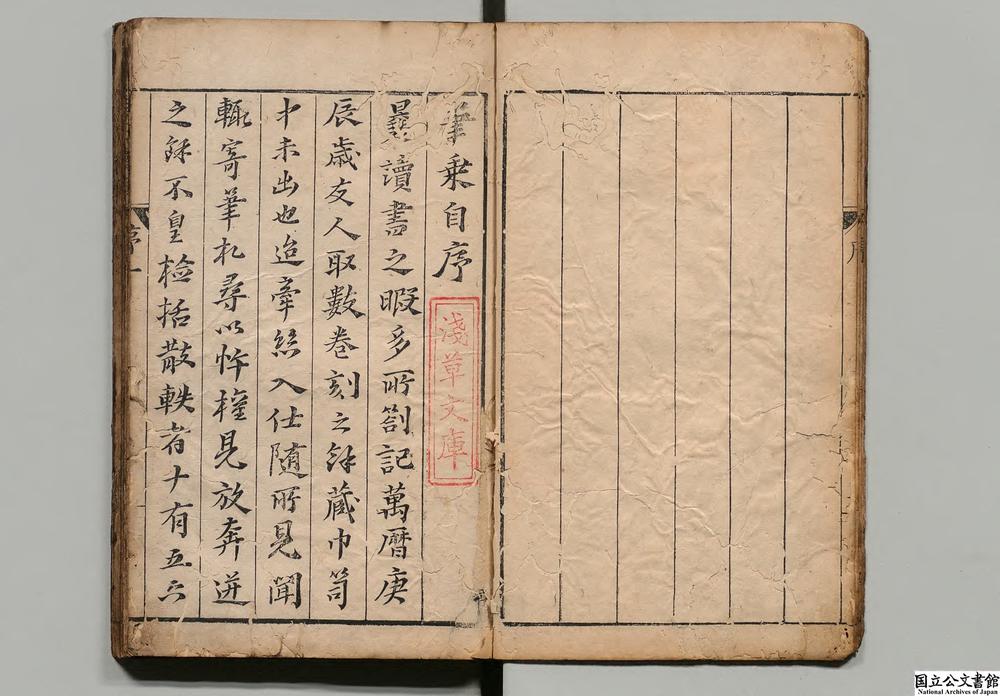 筆乘自序
曩讀書之暇多所劄記萬曆庚
辰歲友人取數卷刻之餘藏巾笥
中未出也迨牽絲入仕隨所見聞
輒寄筆札尋以忤權見放奔迸
之餘不皇檢括散軼者十有五六
淺草文庫
序一
序
国立公文書館
National Archives of Japan